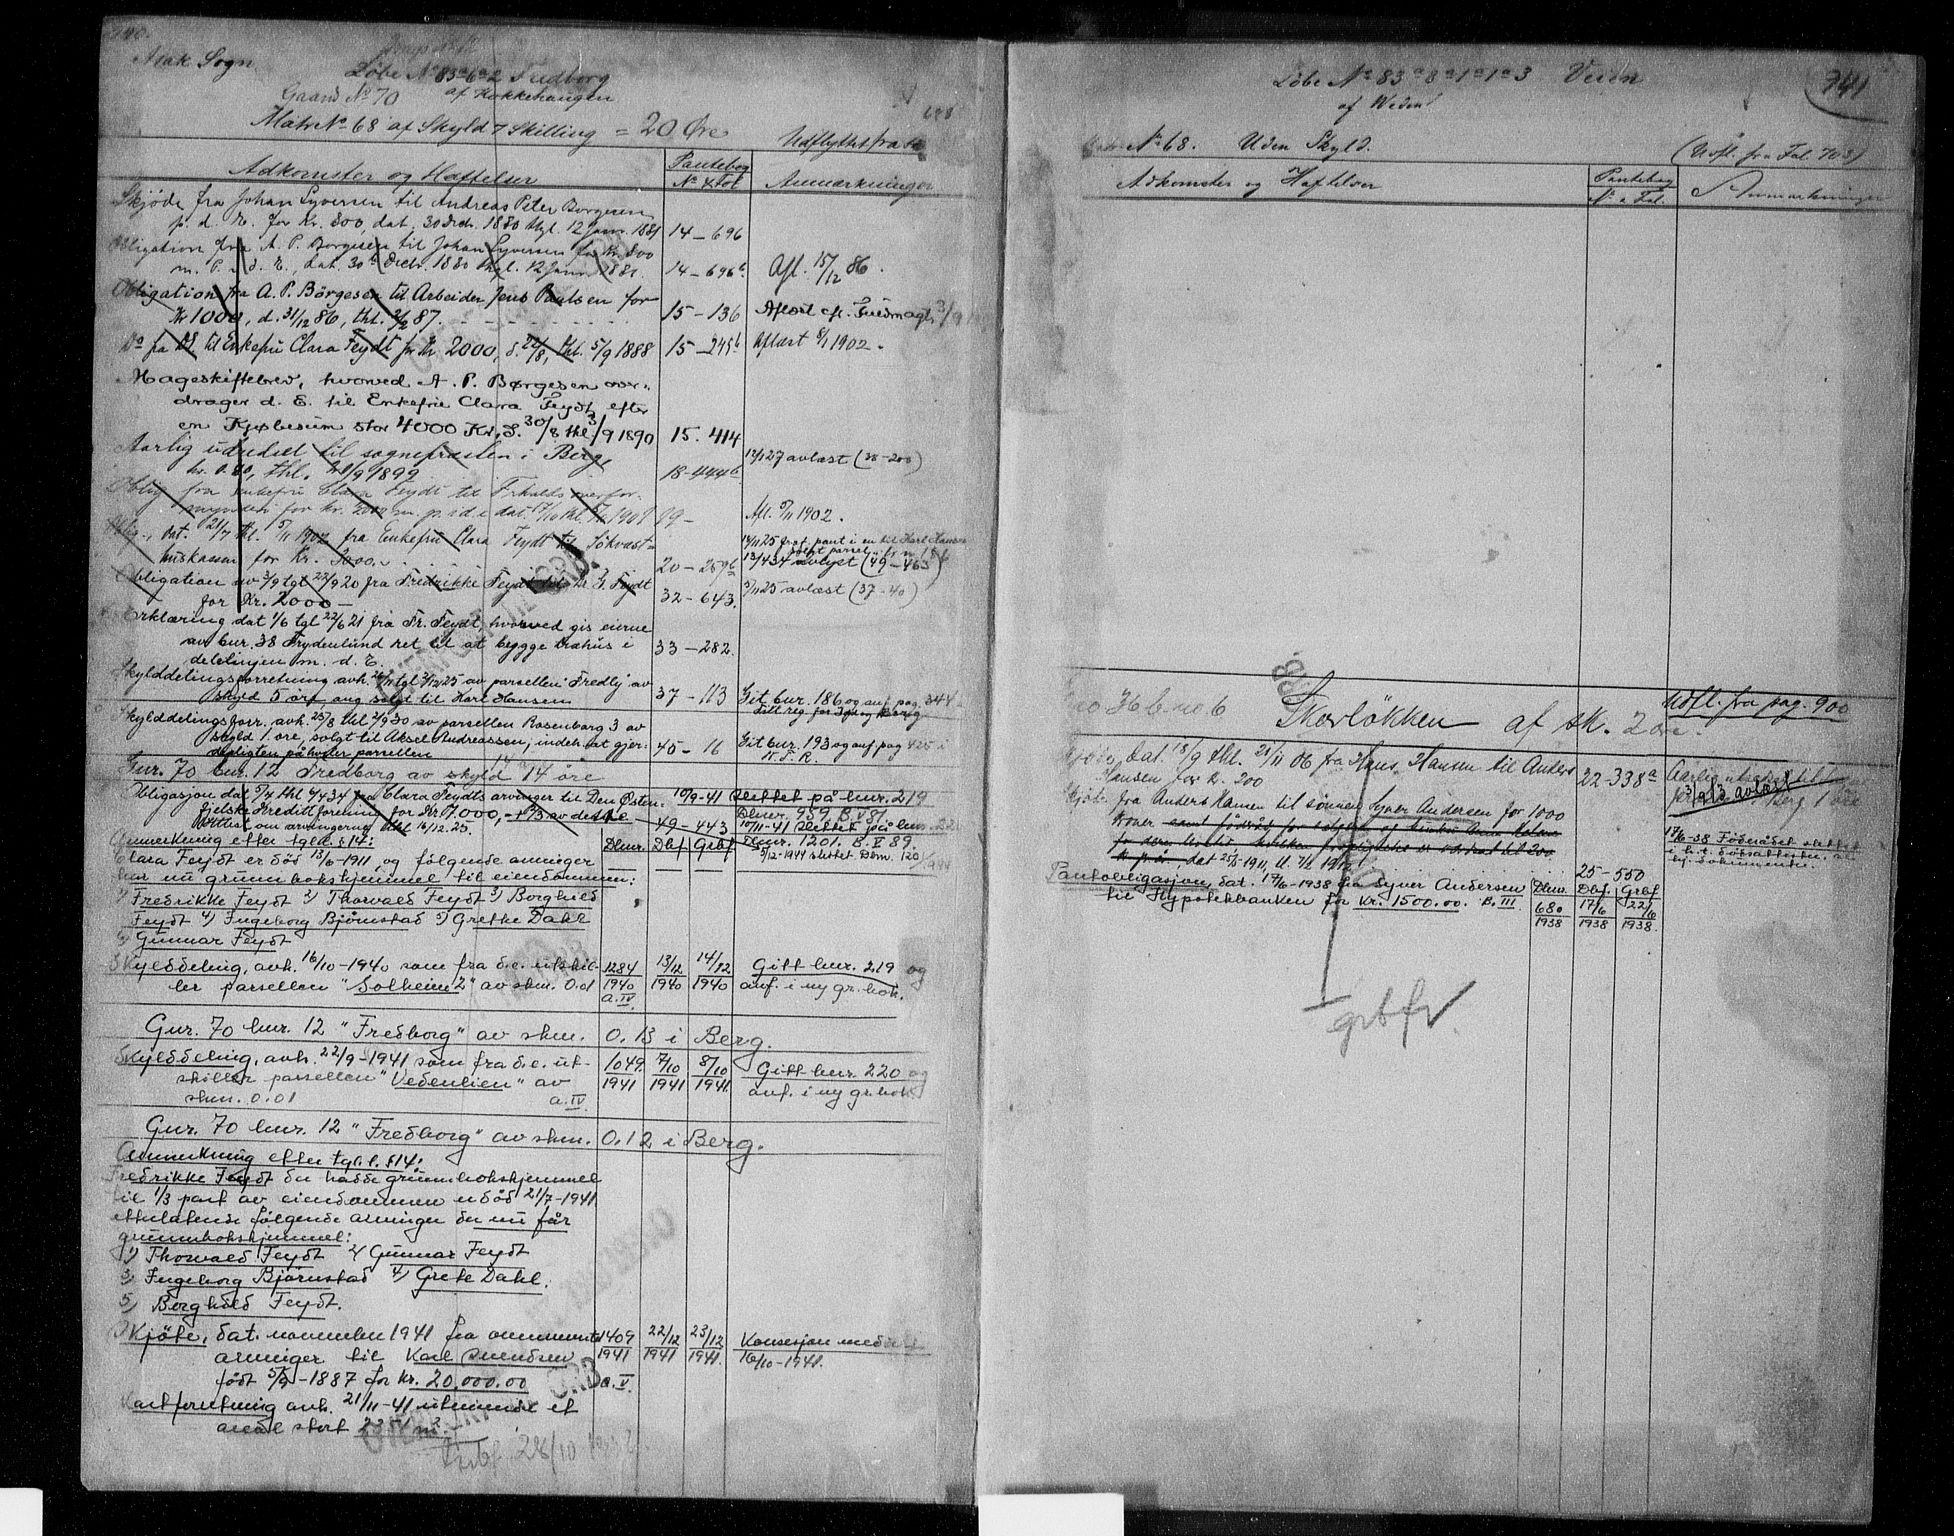 740.
Asak Sogn
Løbe No 83a6a2 Fredborg
af Kokkehaugen
Gaard No 70
Matr No 68 af Skyld 7 Skilling = 20 Øre
Udflyttet fra
688
Adkomster og Hæftelser
Pantebog
No & Fol
Anmærkninger
Skjøde fra Johan Syversen til Andreas Peter Borgesen
p. d. E. for Kr. 800, dat. 30 Decbr. 1880 thgl. 12 Janr. 1881
14-696
Obligation fra A. P. Borgesen til Johan Syversen for Kr. 800
m. P. i d. E., dat. 30te Decbr. 1880 thgl. 12 Janr. 1881.
14-696b.
Afl. 15/12 86.
Obligation fra A. P. Børgesen til Arbeider Jens Paulsen for
Kr 1000, d. 31/12 86, thl. 2/2 87.
15-136
Aflæst efl. Fuldmagt 3/9
Do fra DS til Enkefru Clara Feydt for Kr 2000, d. 22/8, thl. 5/9 1888
15-245b
Aflæst 5/11 1902.
Mageskiftebrev, hvorved A. P. Børgesen over-
drager d. E. til Enkefru Clara Feydt efter
en Kjøbesum stor 4000 Kr, d. 30/8 thl 3/9 1890
15. 414
Aarlig udredsel til sognepræsten i Berg,
kr. 0.80, thl. 1/9 1899
18-444b
12/1 27 avlæst (38-200)
Oblig fra enkefru Clara Feydt til Frhalds overfor-
mynderi for Kr. 2000 m. p. i d. e dat.
Afl. 5/11 1902.
Oblig., dat. 21/7 thl. 5/11 1902 fra Enkefru Clara Feydt til Sökvest-
huskassen for Kr. 3000.
20-259b
14/11 25 frat. pant i en til Karl Hansen
solgt parsel, br. n. 186
13/4 34 avlyst (49-463)
Obligation av 3/9 tgl 22/9 20 fra Fredrikke Feydt til Kr. G. Feydt
for Kr. 2000-
32-643.
5/11 25 avlæst (37-40)
Erklæring dat 1/6 tgl 22/6 21 fra Fr. Feydt, hvorved gis eierne
av bur. 38 Frydenlund ret til at bygge træhus i
delelinjen m. d. E.
33-282.
Skylddelingsforretning avh. 26/11 tgl 3/12 25 av parsellen "Fredly" av
skyld 5 øre, ang. solgt til Karl Hansen
37-113
Git bur. 186 og auf. pag. 344
Skylddelingsforr. avh. 25/8 thl 2/9 30 av parsellen Rosenborg 3 av
skyld 1 øre, solgt til Aksel Andreassen, indeh. at gjer-
depligten påhviler parsellen
45-16
Git bur. 193 og auf pag 425 i
d. T. R.
Gur. 70 bur. 12 Fredborg av skyld 14 øre
Obligasjon dat 5/4 thl 4/4 34 fra Clara Feydts arvinger til Den Østen-
fjelske Kreditforening for Kr 7.000,- 
Attest om arvingerne thl 16/12. 25.
49-443
10/9-41 slettet på bur. 219
Dbnr. 939. B. V 81.
10/11-41 slettet på bur. 220
Dbnr. 1201. B. V 89.
5/12-1944 slettet Dbnr. 120/1944
Anmerkning efter tgl.l. § 14:
Dbnr. Dbf Grbf
Clara Feydt er død 13/6-1911, og følgende arvinger
har nu grunnbokshjemmel til eiendommen:
1) Fredrikke Feydt 2) Thorvald Feydt 3) Borghild
Feydt 4) Ingeborg Bjørnstad 5) Grethe Dahl
6) Gunnar Feydt
Skylddeling, avh. 16/10-1940 som fra d.e. utskil-
ler parsellen "Solheim 2" av skm. 0.01
1284/1940 a. IV
13/12 1940
14/12 1940
Gitt bnr. 219 og
auf. i ny gr.bok.
Gnr. 70 bnr. 12 "Fredborg" av skm. 0.13 i Berg.
Skylddeling, avh. 22/9-1941 som fra d.e. ut-
skiller parsellen "Vedenlien" av
skm. 0.01 a. IV.
1049/1941
7/10 1941
8/10 1941.
Gitt bnr. 220 og
auf. i ny gr.bok
Gnr. 70 bnr. 12 "Fredborg" av skm. 0.12 i Berg.
Anmerkning efter tgl. l. § 14:
Fredrikke Feydt der hadde grunnbokshjemmel
til 1/3 part av eiendommen er død 21/7-1941
etterlatende følgende arvinger der nu får
grunnbokshjemmel:
1) Thorvald Feydt 2) Gunnar Feydt
3) Ingeborg Bjørnstad 4) Grete Dahl.
5) Borghild Feydt.
Skjøte, dat. november 1941 fra ovennevnte
arvinger til Karl Svendsen
født 5/9-1887 for kr. 20.000.00
1409/1941 a. V.
22/12 1941
23/12 1941
Konsesjon meddelt
16/10-1941.
Kartforretning avh. 21/11-41 utvisende et
areal stort
OVERFØRT NY GRB.
741
Løbe No 83a8a1a1a3 Veien
af Weden
Matr No 68. Uden Skyld.
(Udfl. fra Fol. 703)
Adkomster og Hæftelser
Pantebog
No & Fol.
Anmærkninger
Gno 36 b. no 6 Skovløkken af sk. 2 øre.
Udfl. fra pag. 900
Skjøde, dat. 18/9 thl. 21/11 06 fra Hans Hansen til Anders
Hansen for kr. 200
22-338a
Aarlig
3/9 13 avlæst
Skjøde fra Anders Hansen til sønnen Syver Andersen for 1000
kroner
dat 25/5-1911, tl. 7/2 1912
25-550
17/6-38 Föderådet slettet
Pantobligasjon, dat. 17/6-1938 fra Syver Andersen
til Hypotekbanken for kr. 1500.00. B. III
Dbnr. Dbf. Grbf
680/1938
17/6 1938
22/6 1938.
grbfr